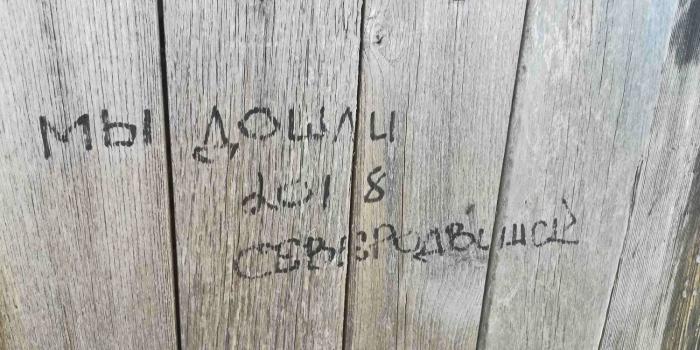 МЫ ДОШЛИ
2018
СЕВЕРОДВИНСК